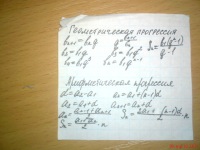 Геометрическая прогрессия
bₙ₊₁ = bₙq q = bₙ₊₁/bₙ Sₙ = b₁(qⁿ-1)/q-1
b₂ = b₁q
b₃ = b₁q² bₙ = b₁qⁿ⁻¹
Арифметическая прогрессия
d = a₂-a₁ aₙ = a₁+(n-1)d
a₂ = a₁+d aₙ₊₁ = aₙ+d
Sₙ = 2a₁+(n-1)d/2 · n
Sₙ = a₁+aₙ/2 · n